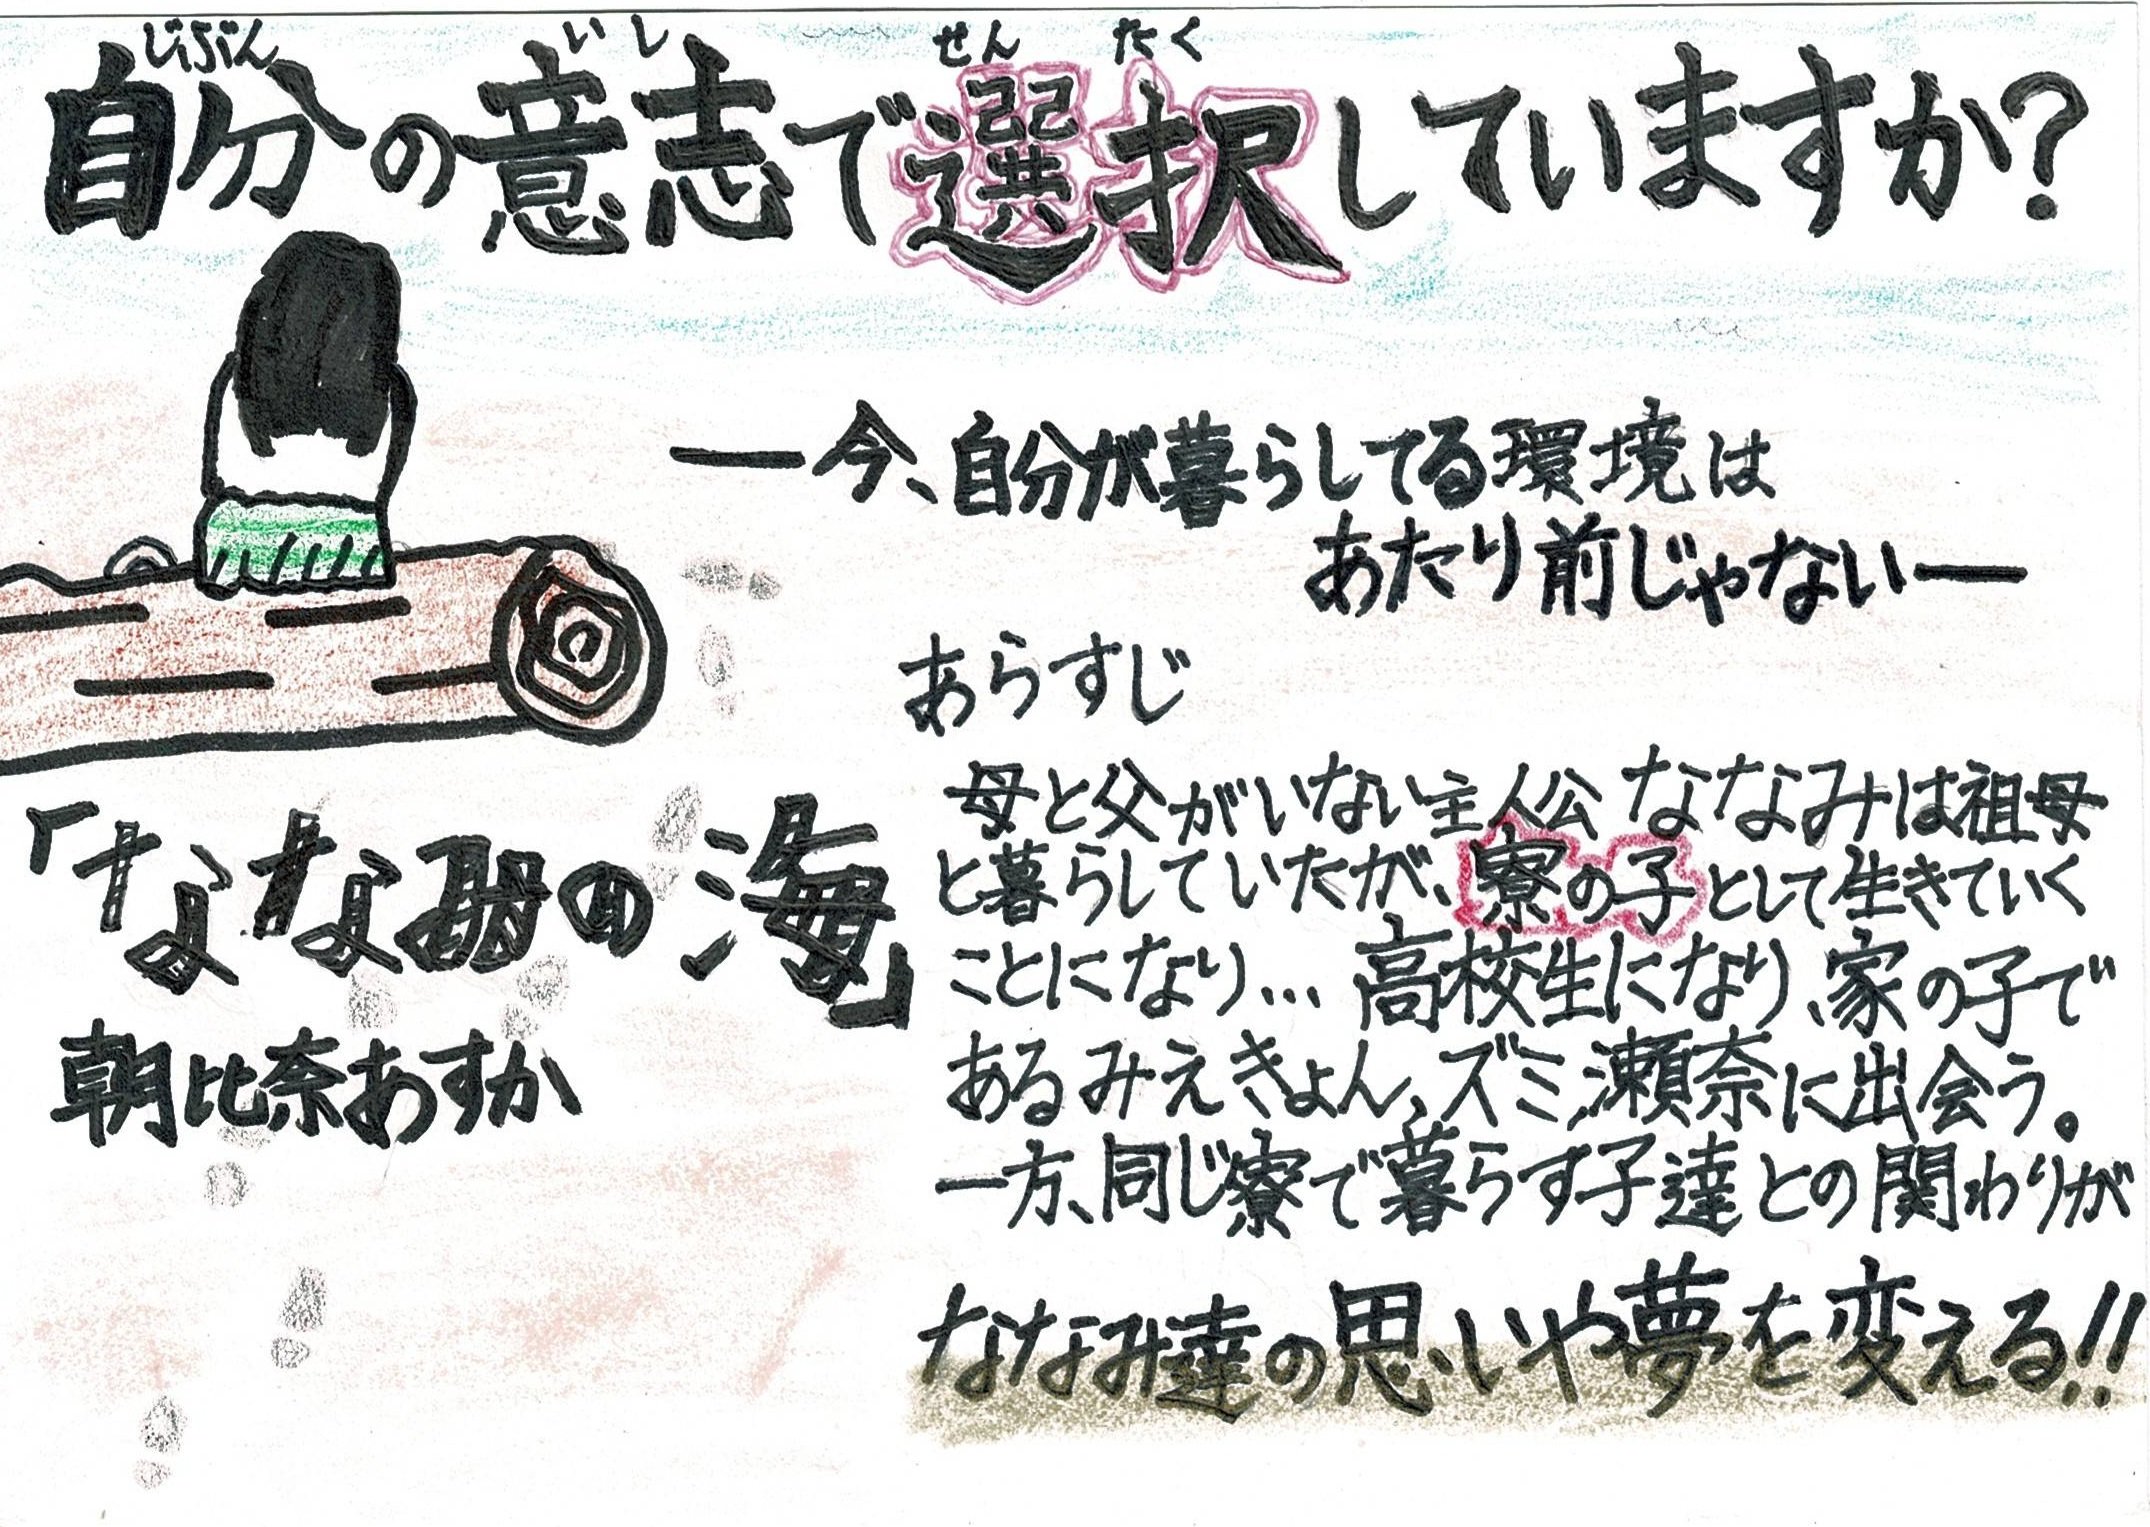 じぶん いし せんたく
自分の意志で選択していますか?
―今、自分が暮らしてる環境は
あたり前じゃない―
あらすじ
母と父がいない主人公 ななみは祖母
と暮らしていたが、寮の子として生きていく
ことになり… 高校生になり、家の子で
あるみえきょん、ズミ、瀬奈に出会う。
一方、同じ寮で暮らす子達との関わりが
ななみ達の思いや夢を変える!!
「ななみの海」
朝比奈あすか